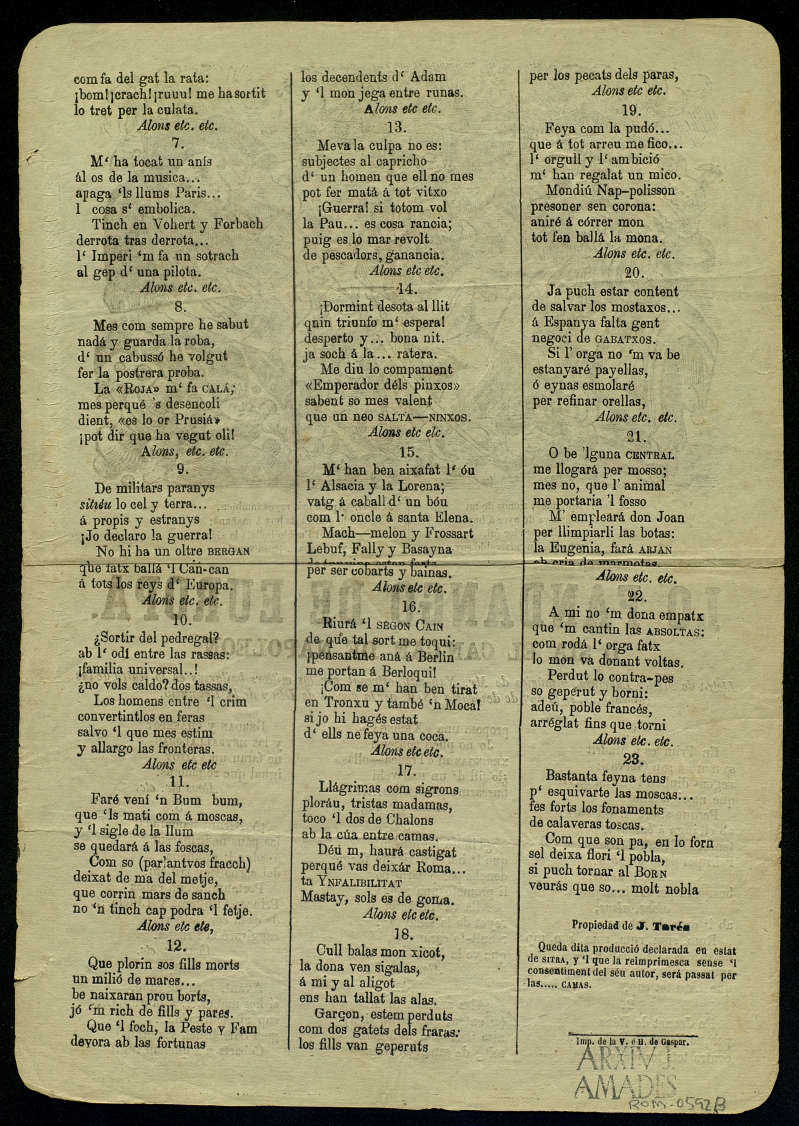 com fa del gat la rata:
¡bom! ¡crach! ¡ruuu! me ha sortit
lo tret per la culata.
Alons etc. etc.
7.
M‘ ha tocat un anís
ál os de la musica...
apaga ‘ls llums Paris...
l cosa s‘ embolica.
Tinch en Vohert y Forbach
derrota tras derrota...
l‘ Imperi ‘m fa un sotrach
al gep d‘ una pilota.
Alons etc. etc.
8.
Mes com sempre he sabut
nadá y guarda la roba,
d‘ un cabussó he volgut
fer la postrera proba.
La «ROJA» m‘ fa CALÁ;
mes perqué ‘s desencoli
dient, «es lo or Prusiá»
¡pot dir que ha vegut oli!
Alons, etc. etc.
9.
De militars paranys
sitiéu lo cel y terra...
á propis y estranys
¡Jo declaro la guerra!
No hi ha un oltre BERGAN
que fatx ballá ‘l Can-can
á tots los reys d‘ Europa.
Alons etc. etc.
10.
¿Sortir del pedregal?
ab l‘ odi entre las rassas:
¡familia universal..!
¿no vols caldo? dos tassas,
Los homens entre ‘l crim
convertintlos en feras
salvo ‘l que mes estim
y allargo las fronteras.
Alons etc etc
11.
Faré vení ‘n Bum bum,
que ‘ls mati com á moscas,
y ‘l sigle de la llum
se quedará á las foscas,
Com so (parlantvos fracch)
deixat de ma del metje,
que corrin mars de sanch
no ‘n tinch cap podra ‘l fetje.
Alons etc etc,
12.
Que plorin sos fills morts
un milió de mares...
be naixaran prou borts,
jó ‘m rich de fills y pares.
Que ‘l foch, la Peste y Fam
devora ab las fortunas
los decendents d‘ Adam
y ‘l mon jega entre runas.
Alons etc etc.
13.
Meva la culpa no es:
subjectes al capricho
d‘ un homen que ell no mes
pot fer matá á tot vitxo
¡Guerra! si totom vol
la Pau... es cosa rancia;
puig es lo mar revolt
de pescadors, ganancia.
Alons etc etc.
14.
¡Dormint desota al llit
qnin triunfo m‘ espera!
desperto y... bona nit.
ja soch á la... ratera.
Me diu lo compament
«Emperador déls pinxos»
sabent so mes valent
que un neo SALTA—NINXOS.
Alons etc etc.
15.
M‘ han ben aixafat l‘ óu
l‘ Alsacia y la Lorena;
vatg á caball d‘ un bóu
com l‘ oncle á santa Elena.
Mach—melon y Frossart
Lebuf, Fally y Basayna
per ser cobarts y bainas.
Alons etc etc.
16.
Riurá ‘l SEGON CAIN
de que tal sort me toqui:
¡pensantme aná á Berlin
me portan á Berloqui!
¡Com se m‘ han ben tirat
en Tronxu y també ‘n Moca!
si jo hi hagés estat
d‘ ells ne feya una coca.
Alons etc etc.
17.
Llágrimas com sigrons
ploráu, tristas madamas,
toco ‘l dos de Chalons
ab la cúa entre camas.
Déu m, haurá castigat
perqué vas deixár Roma...
ta YNFALIBILITAT
Mastay, sols es de goma.
Alons etc etc.
18.
Cull balas mon xicot,
la dona ven sigalas,
á mi y al aligot
ens han tallat las alas.
Garçon, estem perduts
com dos gatets dels fraras:
los fills van geperuts
per los pecats dels paras,
Alons etc etc.
19.
Feya com la pudó...
que á tot arreu me fico...
l‘ orgull y l‘ ambició
m‘ han regalat un mico.
Mondiú Nap-polisson
presoner sen corona:
aniré á córrer mon
tot fen ballá la mona.
Alons etc. etc.
20.
Ja puch estar content
de salvar los mostaxos...
á Espanya falta gent
negoci de GABATXOS.
Si l’ orga no ‘m va be
estanyaré payellas,
ó eynas esmolaré
per refinar orellas,
Alons etc. etc.
21.
O be ‘lguna CENTRAL
me llogará per mosso;
mes no, que l’ animal
me portaria ‘l fosso
M’ empleará don Joan
per llimpiarli las botas:
la Eugenia, fará ARJAN
ab cria de marmotas.
Alons etc. etc.
22.
A mi no ‘m dona empatx
que ‘m cantin las ABSOLTAS:
com rodá l‘ orga fatx
lo mon va donant voltas.
Perdut lo contra-pes
so geperut y borni:
adeú, poble francés,
arréglat fins que torni
Alons etc. etc.
23.
Bastanta feyna tens
p‘ esquivarte las moscas...
fes forts los fonaments
de calaveras toscas.
Com que son pa, en lo forn
sel deixa flori ‘l pobla,
si puch tornar al BORN
veurás que so... molt nobla
Propiedad de J. Tarés
Queda dita producció declarada en estat
de SITRA, y ‘l que la reimprimesca sense ‘l
consentiment del séu autor, será passat per
las..... CAMAS.
Imp. de la V. é H. de Gaspar.
ARXIU J.
AMADES
ROM-0592/3